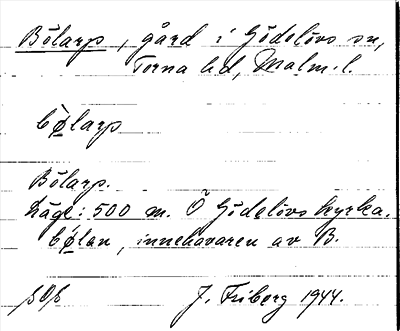 Bölarp, gård i Gödelövs sn,
Torna hd, Malm. l.
bø̀larp
Bölarp.
Läge: 500 m. Ö Gödelövs kyrka.
bø̀lan, innehavaren av B.
J. Friberg 1944.